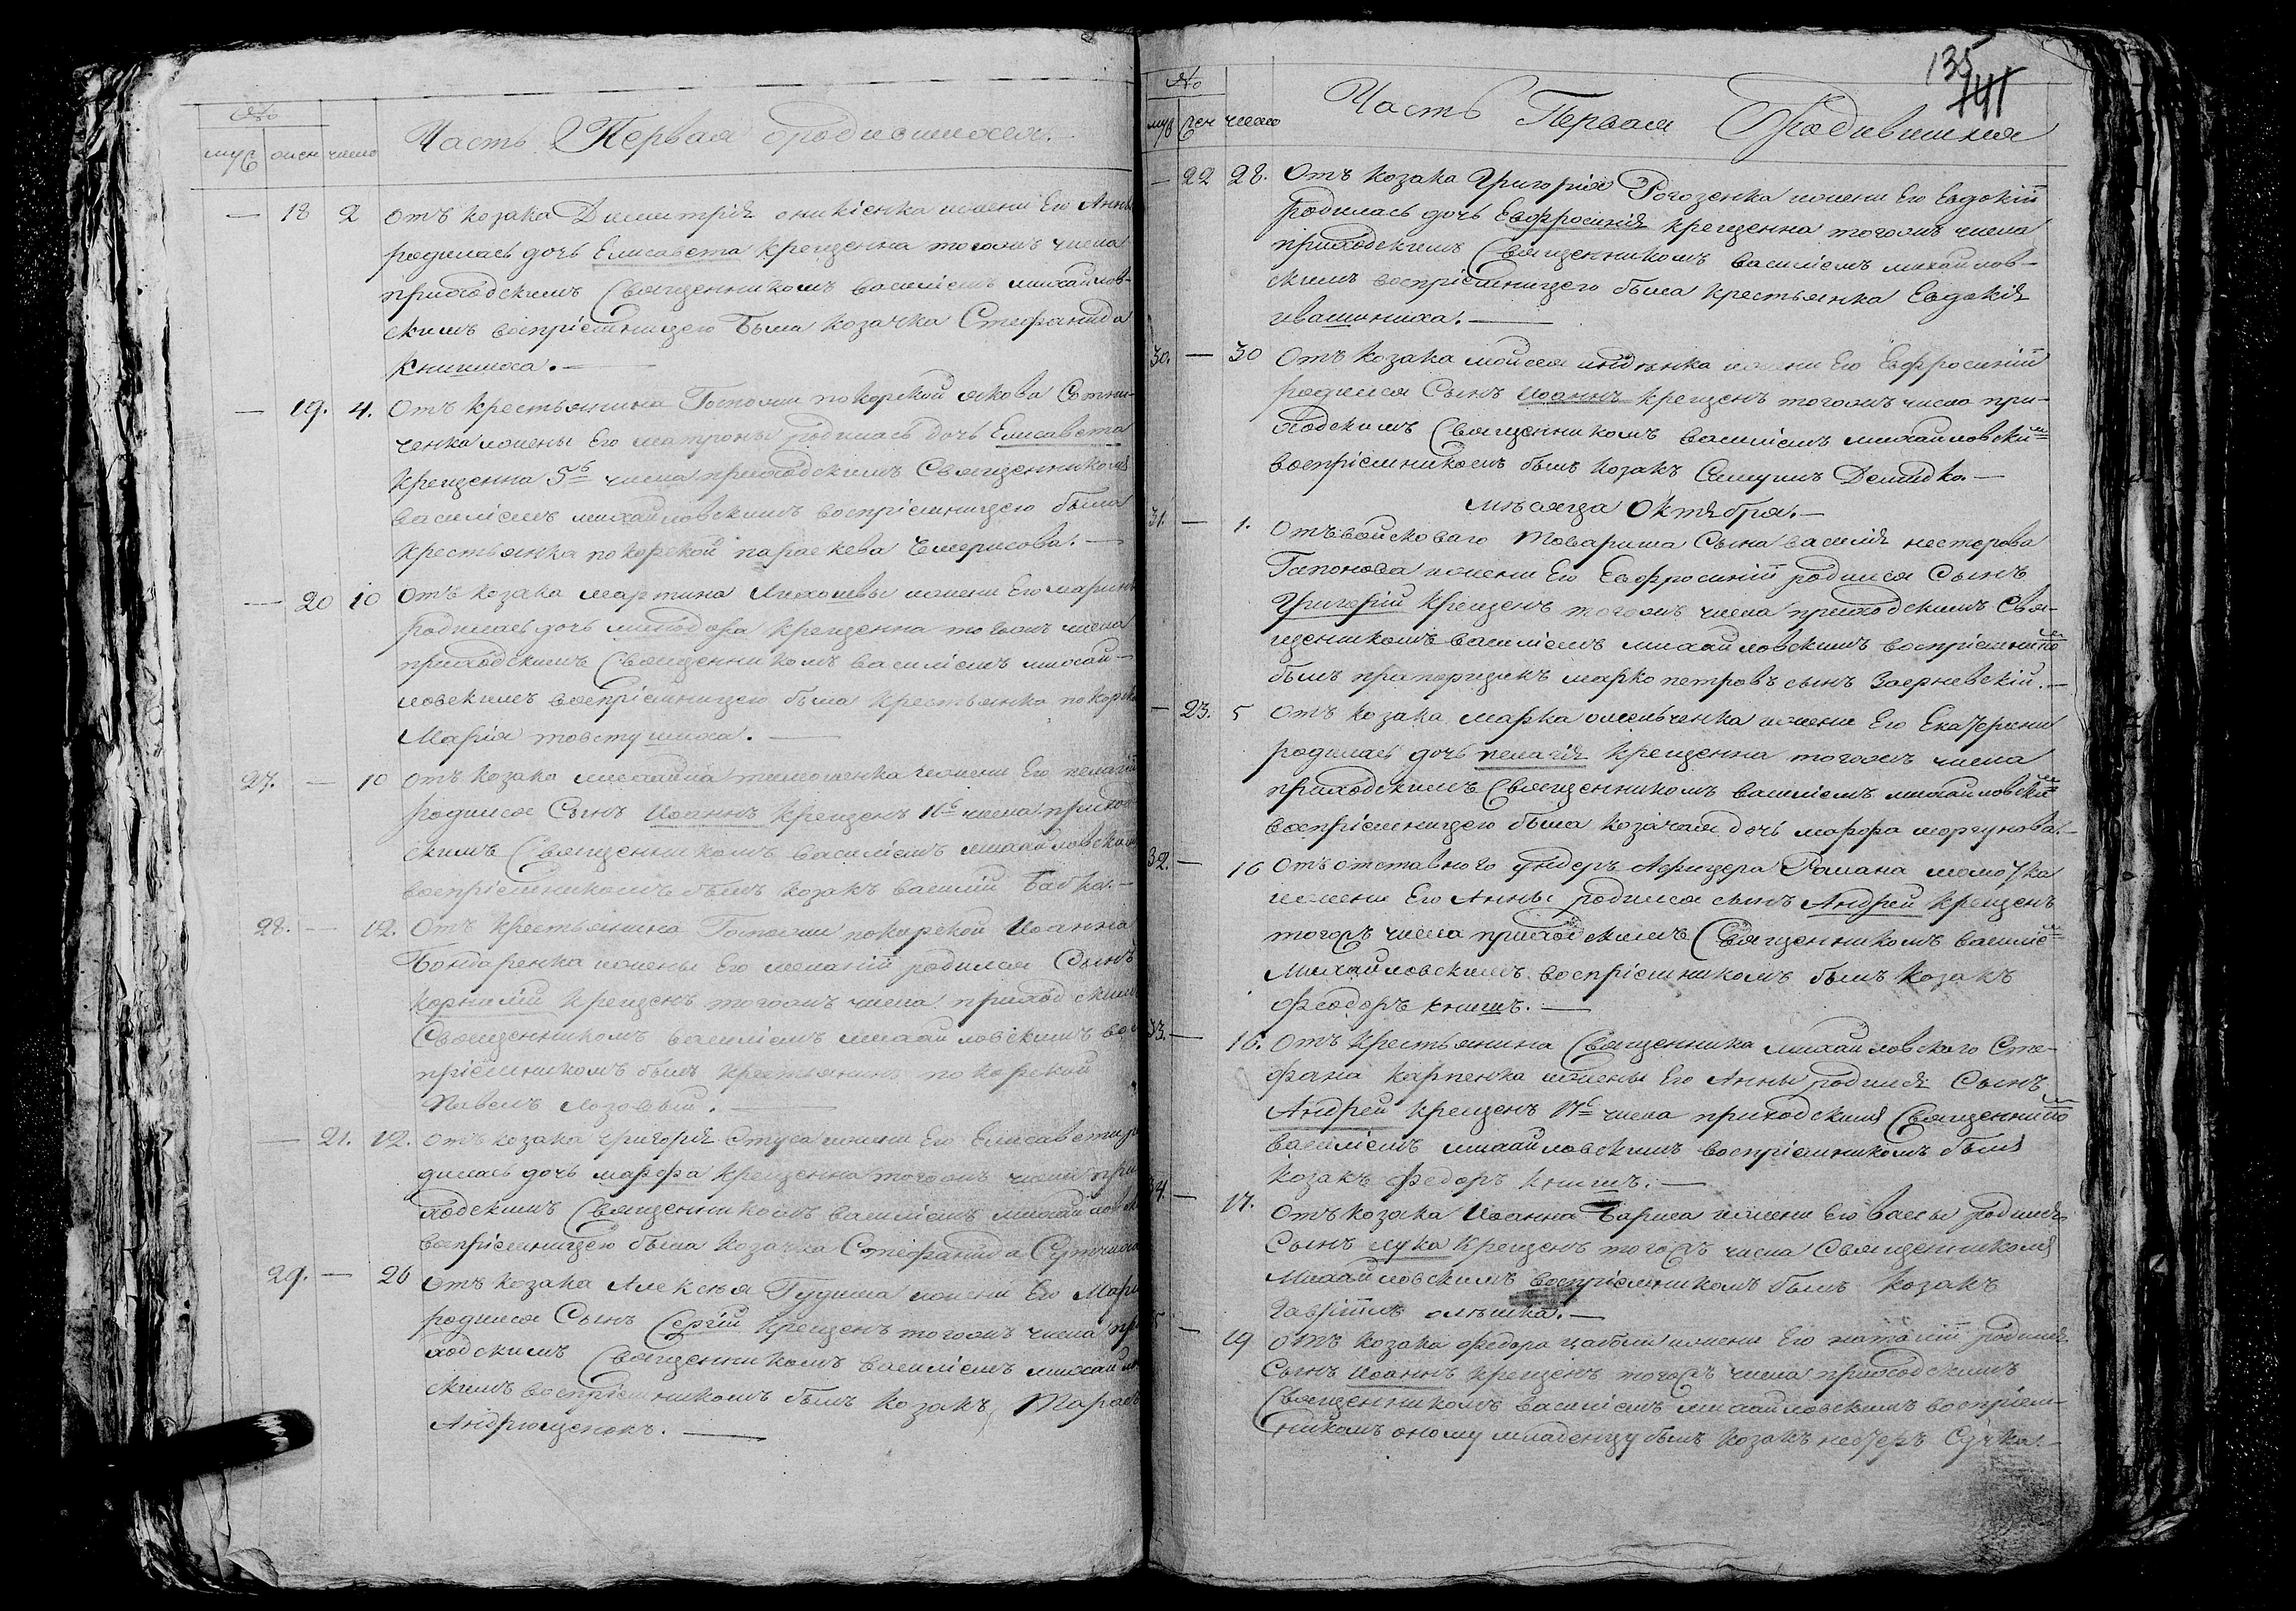 №
муж жен число
Часть Первая о родившихся.
— 18 2 отъ козака Димитрія оникіенка и жени Его Анны
родилась дочь Елисавета крещенна тогожъ числа
приходскимъ Священникомъ василіемъ михайлов-
скимъ воспріемницею была козачка Стефанида
книшиха. —
— 19. 4. Отъ крестьянина Госпожи покорской якова Сотни-
ченка и жены Его матроны родилась дочь Елисавета
крещенна 5го числа приходскимъ Священникомъ
василіемъ михайловскимъ воспріемницею была
крестьянка покорской параскева Чемерисова. —
— 20 10 Отъ козака мартина и жени Его марины
родилась дочь минодора крещенна тогожъ числа
приходскимъ Священникомъ василіемъ михай-
ловскимъ воспріемницею была крестьянка покорско
Марія товстушиха. —
27. — 10 отъ козака михаила тимошенка и жени Его пелагіи
родился Сынъ Иоаннъ крещенъ 11го числа приход
скимъ Священникомъ василіемъ михайловским
воспріемникомъ былъ козакъ василій бабка. —
28. — 12. Отъ крестьянина Госпожи покорской Иоанна
Бондаренка и жены Его меланіи родился Сынъ
корнилій крещенъ тогожъ числа приходским
Священникомъ василіемъ михайловскимъ вос
пріемникомъ былъ крестьянинъ покорской
Павелъ лозовый. —
— 21. 12. отъ козака григорія и жени Его Елисаветы ро
дилась дочь марфа крещенна тогожъ числа при
ходскимъ Священникомъ василіемъ михайловск
воспріемницею была козачка Стефанида
29. — 26 отъ козака Алексѣя Гудыма и жени Его Мари
родился Сынъ Сергій крещенъ тогожъ числа пр
ходскимъ Священникомъ василіемъ михайлов
скимъ воспріемникомъ былъ козакъ Тарас
Андрющенокъ. —
135
141
№
муж жен число
Часть Первая о Родившихся
— 22 28. Отъ козака Григорія Рогозенка и жени Его Евдокіи
родилась дочь Евфросинія крещенна тогожъ числа
приходскимъ Священникомъ василіемъ михайлов-
скимъ воспріемницею была крестьянка Евдокія
ивашиниха. —
30. — 30 Отъ козака мойсея и жени Его Евфросиніи
родился Сынъ Иоаннъ крещенъ тогожъ числа при-
ходскимъ Священникомъ василіемъ михайловским
воспріемникомъ былъ козакъ Самуилъ Демидко. —
мѣсяца Октября. —
31. — 1. Отъ войсковаго товариша Сына василія нестерова
Гапонова и жени Его Евфросиніи родился Сынъ
Григорій крещенъ тогожъ числа приходскимъ Свя-
щеникомъ василіемъ михайловскимъ воспріемником
былъ прапорщикъ марко петровъ сынъ Заерневскій. —
— 23. 5 Отъ козака марка омельченка и жени Его Екатерини
родилась дочь пелагія крещенна тогожъ числа
приходскимъ Священникомъ василіемъ михайловским
воспріемницею была козачая дочь марфа моргунова. —
32. — 16 Отъ отставного ундеръ Афицера Романа
и жени Его Анны родился сынъ Андрей крещенъ
тогожъ числа приходскимъ Священникомъ василіем
Михайловскимъ воспріемникомъ былъ козакъ
феодоръ книшъ. —
33. — 16. Отъ крестьянина Священника михайловского Сте-
фана карпенка и жены Его Анны родился Сынъ
Андрей крещенъ 17го числа приходскимъ Священником
василіемъ михайловскимъ воспріемникомъ былъ
козакъ федоръ книшъ. —
34. — 17. Отъ козака Иоанна и жени Его вассы родился
Сынъ лука крещенъ тогожъ числа Священникомъ
Михайловскимъ воспріемникомъ былъ козакъ
Гавріилъ —
5 — 19 отъ козака федора и жени Его наталіи родился
Сынъ Иоаннъ крещенъ тогожъ числа приходскимъ
Священникомъ василіемъ михайловскимъ воспріем-
никомъ оному младенцу былъ козакъ